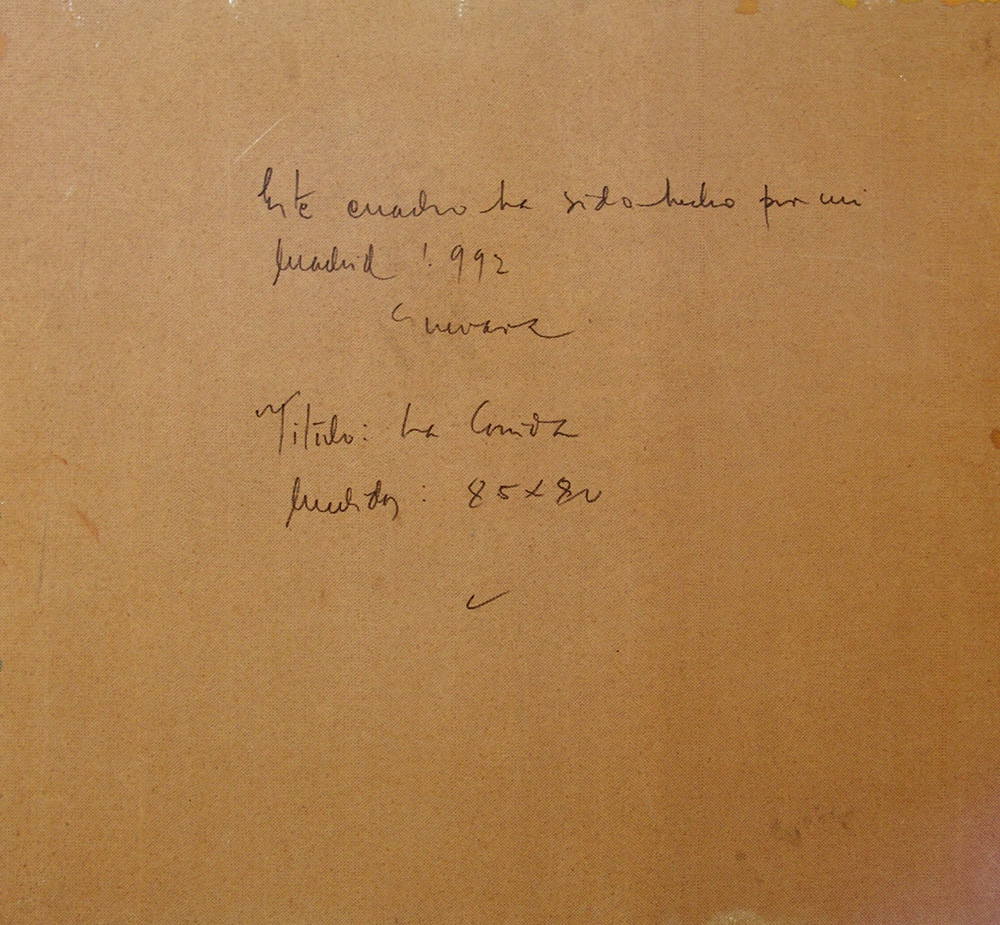 Este cuadro ha sido hecho por mi
Madrid 1.992
Guevara
Titulo: La Comida
Medidas: 85 x 80